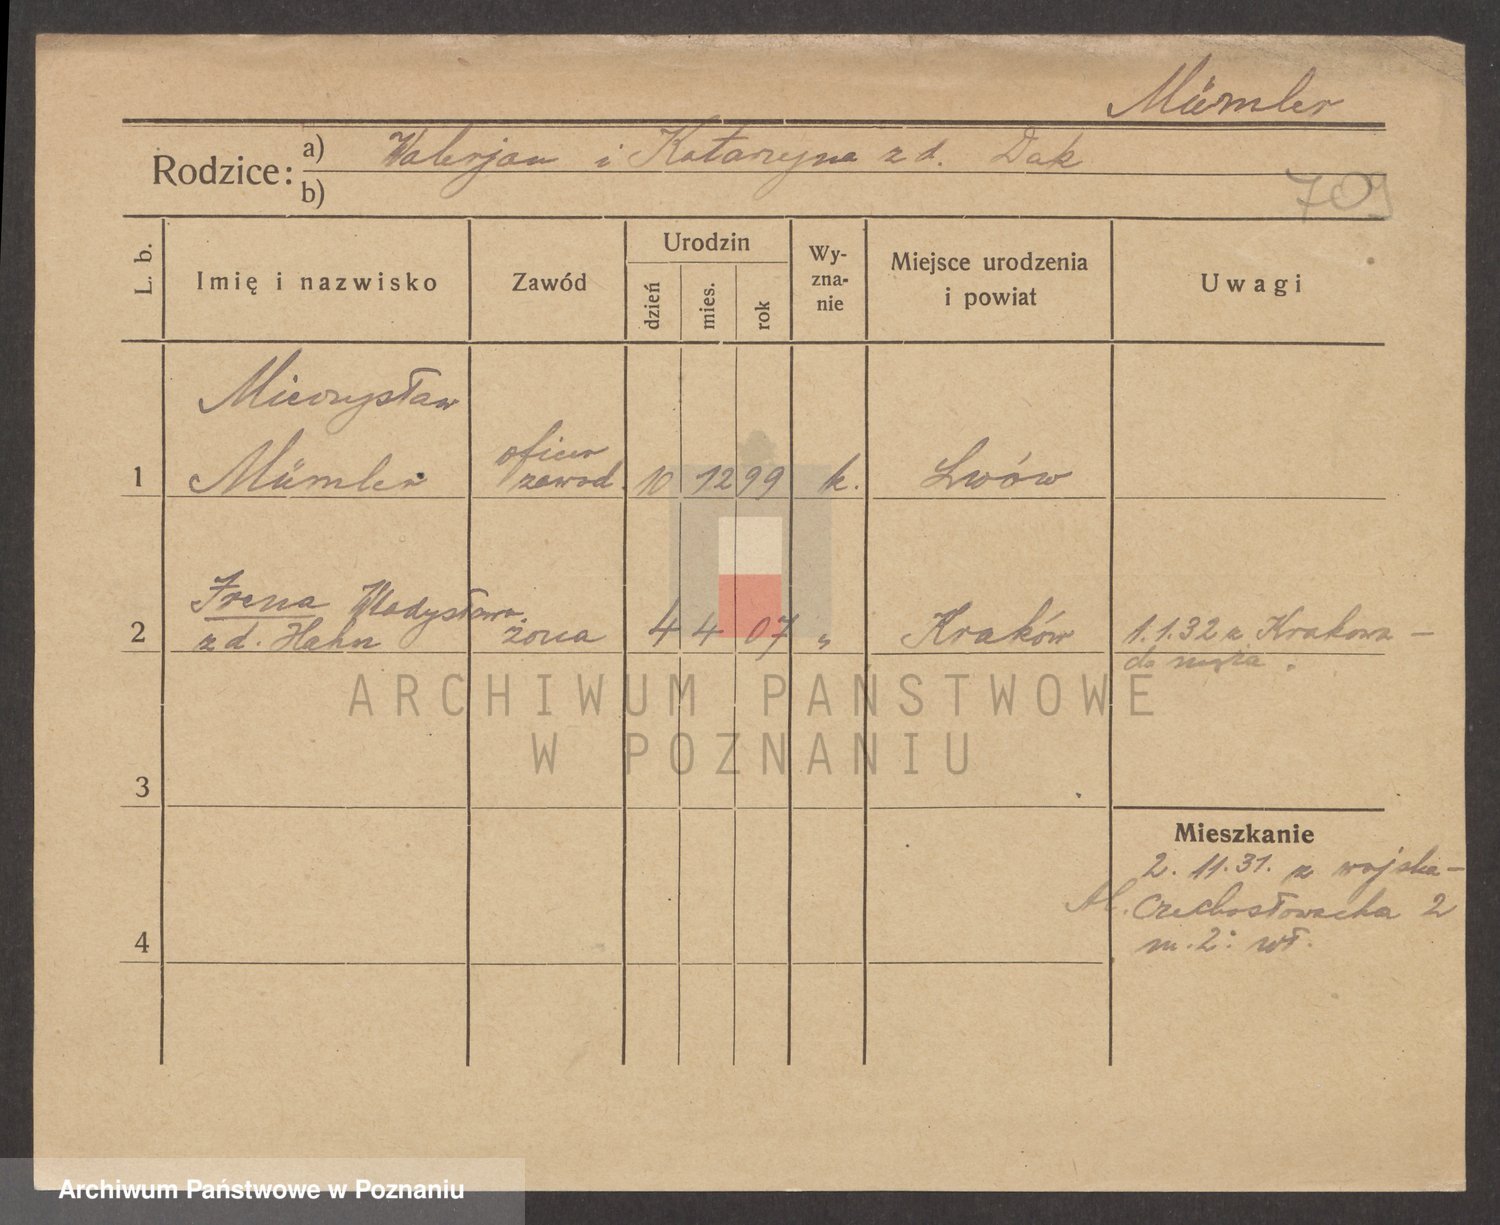 Mümler
Rodzice:
a) Walerjan i Katarzyna z d. Dak
b)
709
L. b.
Imię i nazwisko
Zawód
Urodzin
dzień
mies.
rok
Wy-
zna-
nie
Miejsce urodzenia
i powiat
Uwagi
Mieczysław
1 Mümler oficer
zawod. 10 12 99 k. Lwów
Irena Władysława
2 z d. Hahn żona 4 4 07 " Kraków 1.1.32 z Krakowa –
do męża.
ARCHIWUM PAŃSTWOWE
W POZNANIU
3
Mieszkanie
2. 11. 31. z wojska –
Al. Czechosłowacka 2
4 m. 2: wł.
Archiwum Państwowe w Poznaniu